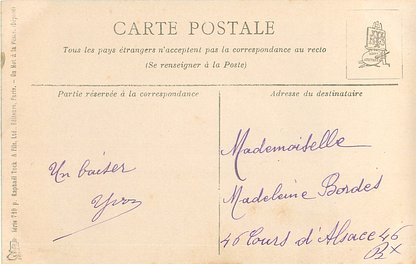 CARTE POSTALE
Tous les pays étrangers n'acceptent pas la correspondance au recto
(Se renseigner à la Poste)
Partie réservée à la correspondance
Adresse du destinataire
Un baiser
Yvon
Mademoiselle
Madeleine Bordes
46 Cours d'Alsace 46
Bx
Série 710 p. Raphael Tuck & Fils, Ltd. Editeurs, Paris.